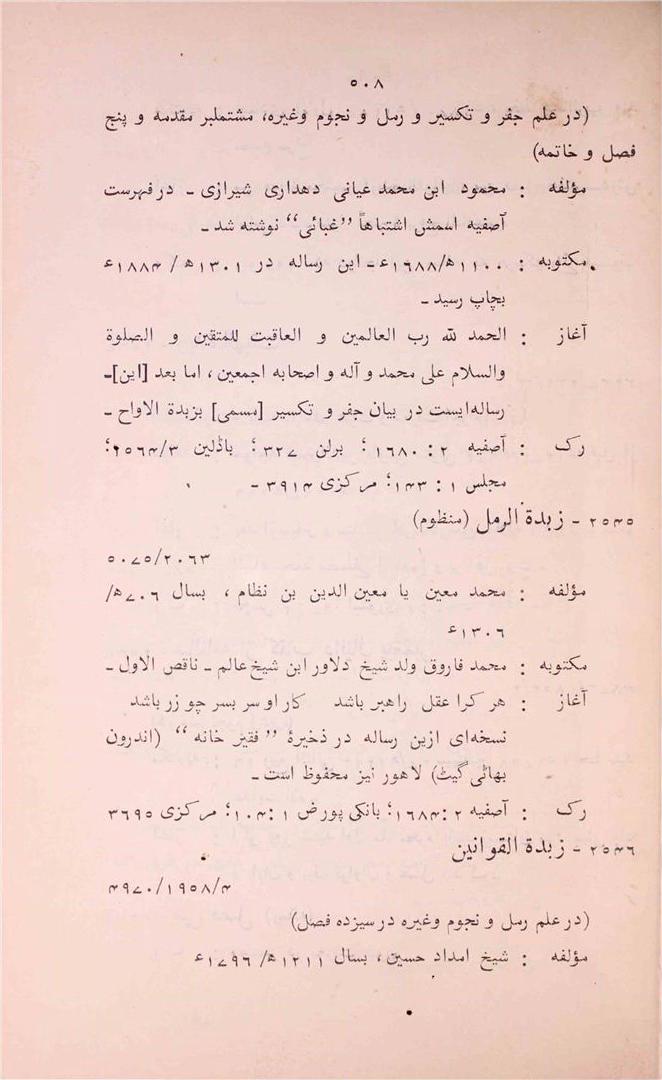 ۵۰۸
(در علم جفر و تکسیر و رمل و نجوم وغیره، مشتملبر مقدمه و پنج
فصل و خاتمه)
مؤلفه : محمود ابن محمد عیانی دهداری شیرازی ـ در فهرست
آصفیه اسمش اشتباهاً ”غبائی“ نوشته شد ـ
مکتوبه : ۱۱۰۰ه/۱۶۸۸ء ـ این رساله در ۱۳۰۱ه/۱۸۸۴ء
بچاپ رسید ـ
آغاز : الحمد لله رب العالمین و العاقبت للمتقین و الصلوة
والسلام علی محمد و آله و اصحابه اجمعین، اما بعد [این]ـ
رساله‌ایست در بیان جفر و تکسیر [مسمی] بزبدة الاواح ـ
رک : آصفیه ۲ : ۱۶۸۰؛ برلن ۳۲۷؛ باڈلین ۲۵۶۴/۳؛
مجلس ۱ : ۱۴۳؛ مرکزی ۳۹۱۴ ـ
۲۵۴۵ ـ زبدة الرمل (منظوم)
۵۰۷۵/۲۰۶۳
مؤلفه : محمد معین یا معین الدین بن نظام، بسال ۷۰۶ه/
۱۳۰۶ء
مکتوبه : محمد فاروق ولد شیخ دلاور ابن شیخ عالم ـ ناقص الاول ـ
آغاز : هر کرا عقل راهبر باشد کار او سر بسر چو زر باشد
نسخه‌ای ازین رساله در ذخیرۀ ”فقیر خانه“ (اندرون
بهاٹی گیٹ) لاهور نیز محفوظ است ـ
رک : آصفیه ۲ : ۱۶۸۴؛ بانکی پورض ۱ : ۱۰۴؛ مرکزی ۳۶۹۵
۲۵۴۶ ـ زبدة القوانین
۴۹۷۰/۱۹۵۸/۴
(در علم رمل و نجوم وغیره در سیزده فصل)
مؤلفه : شیخ امداد حسین، بسال ۱۲۱۱ه/۱۷۹۶ء